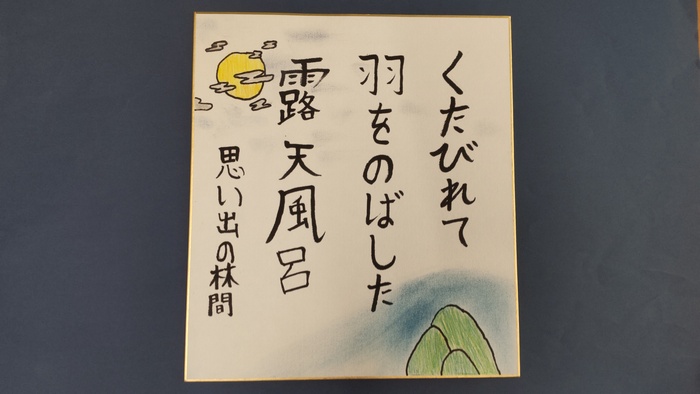 くたびれて
羽をのばした
露天風呂
思い出の林間